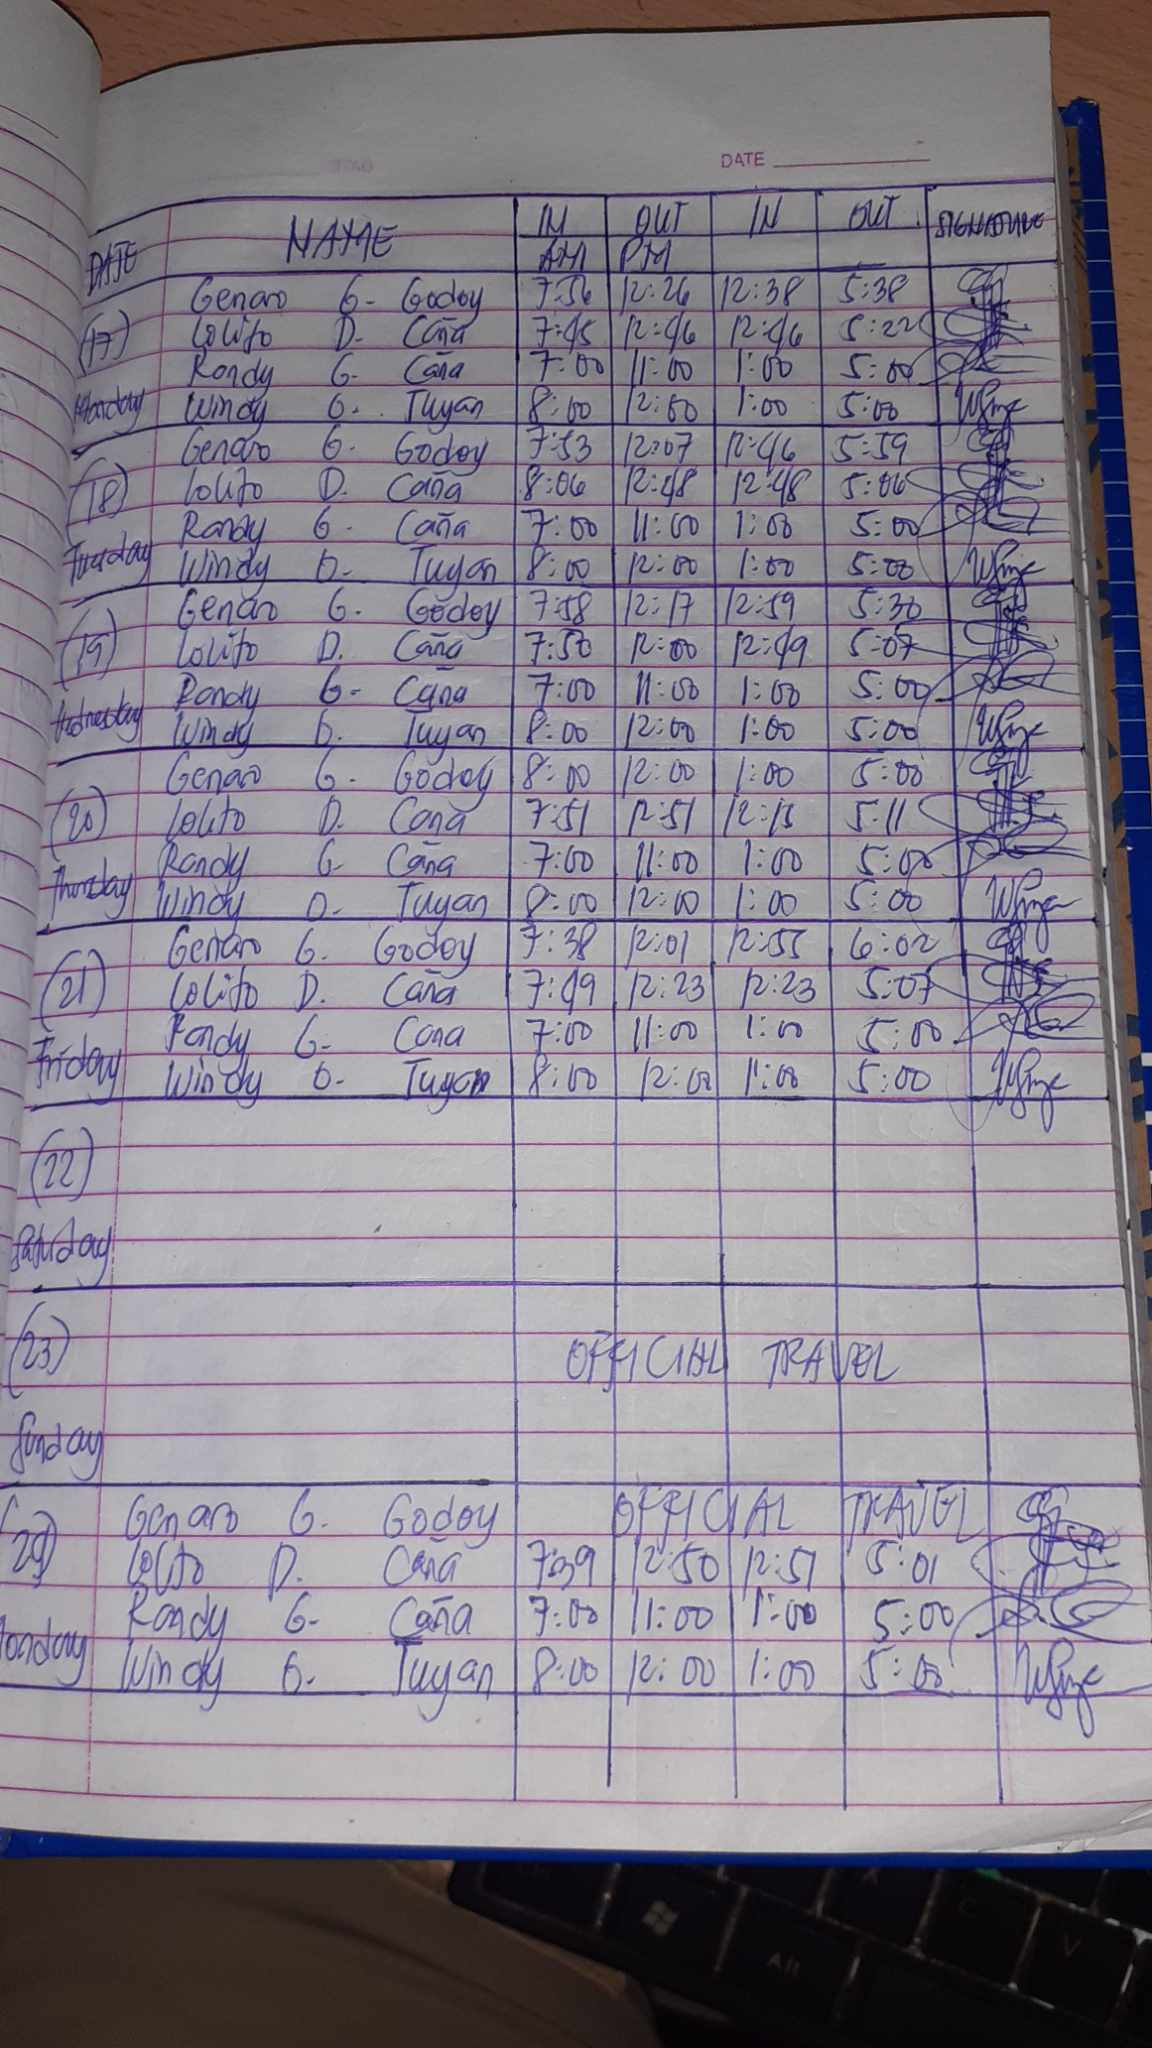 DATE
DATE NAME IN OUT IN OUT SIGNATURE
AM PM
Genaro G. Godoy 7:56 12:26 12:38 5:38
(17) Lolito D. Caña 7:45 12:46 12:46 5:22
Randy G. Caña 7:00 11:00 1:00 5:00
Monday Windy D. Tuyan 8:00 12:00 1:00 5:00
Genaro G. Godoy 7:53 12:07 12:46 5:59
(18) Lolito D. Caña 8:06 12:48 12:48 5:06
Randy G. Caña 7:00 11:00 1:00 5:00
Tuesday Windy D. Tuyan 8:00 12:00 1:00 5:00
Genaro G. Godoy 7:58 12:17 12:59 5:30
(19) Lolito D. Caña 7:50 12:00 12:49 5:07
Randy G. Caña 7:00 11:00 1:00 5:00
Wednesday Windy D. Tuyan 8:00 12:00 1:00 5:00
Genaro G. Godoy 8:00 12:00 1:00 5:00
(20) Lolito D. Caña 7:51 12:51 5:11
Randy G. Caña 7:00 11:00 1:00 5:00
Thursday Windy D. Tuyan 8:00 12:00 1:00 5:00
Genaro G. Godoy 7:38 12:01 12:55 6:02
(21) Lolito D. Caña 7:49 12:23 12:23 5:07
Randy G. Cana 7:00 11:00 1:00 5:00
Friday Windy D. Tuyan 8:00 12:00 1:00 5:00
(22)
Saturday
(23) OFFICIAL TRAVEL
Sunday
Genaro G. Godoy OFFICIAL TRAVEL
24) Lolito D. Caña 7:39 12:50 12:51 5:01
Randy G. Caña 7:00 11:00 1:00 5:00
Monday Windy D. Tuyan 8:00 12:00 1:00 5:00
Alt
V